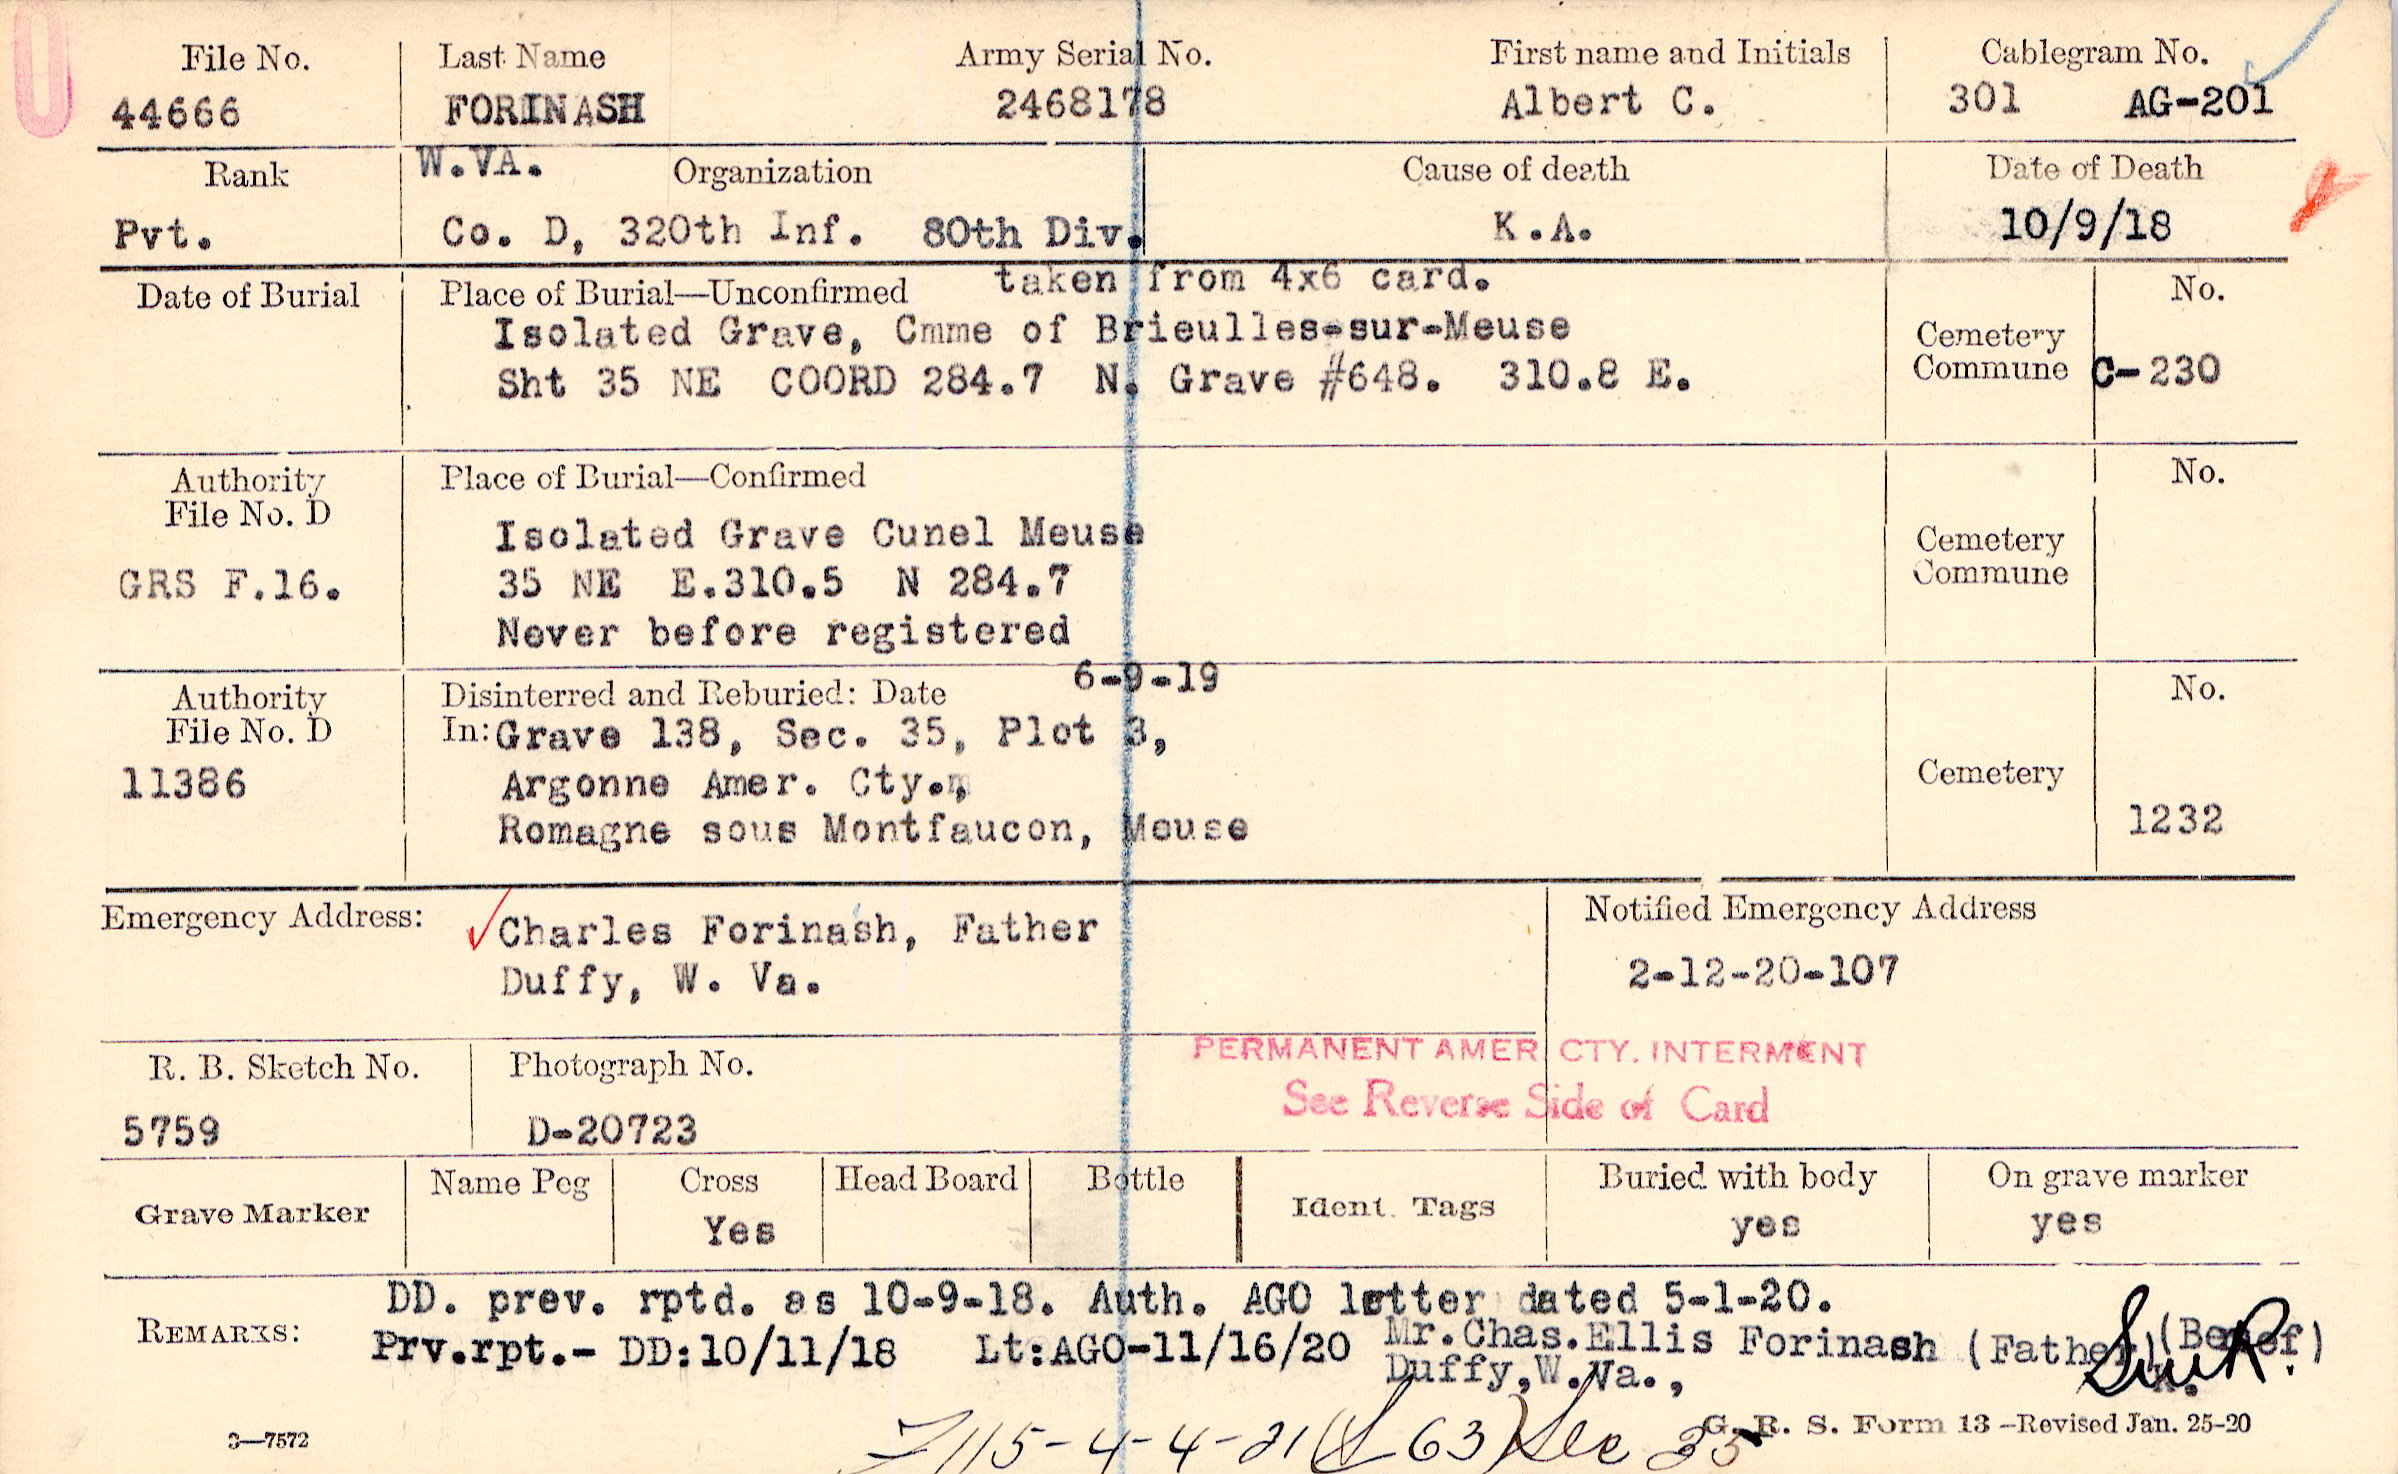 File No. Last Name Army Serial No. First name and Initials Cablegram No.
44666 FORINASH 2468178 Albert C. 301 AG-201
Rank W.VA. Organization Cause of death Date of Death
Pvt. Co. D, 320th Inf. 80th Div. K.A. 10/9/18
taken from 4x6 card.
Date of Burial Place of Burial—Unconfirmed No.
Isolated Grave, Cmme of Brieulles-sur-Meuse Cemetery
Sht 35 NE COORD 284.7 N. Grave #648. 310.8 E. Commune C-230
Authority Place of Burial—Confirmed No.
File No. D
Isolated Grave Cunel Meuse Cemetery
GRS F.16. 35 NE E.310.5 N 284.7 Commune
Never before registered
Authority Disinterred and Reburied: Date 6-9-19 No.
File No. D In: Grave 138, Sec. 35, Plot 3,
11386 Argonne Amer. Cty., Cemetery
Romagne sous Montfaucon, Meuse 1232
Emergency Address: Charles Forinash, Father Notified Emergency Address
Duffy, W. Va. 2-12-20-107
PERMANENT AMER. CTY. INTERMENT
R. B. Sketch No. Photograph No. See Reverse Side of Card
5759 D-20723
Grave Marker Name Peg Cross Head Board Bottle Ident. Tags Buried with body On grave marker
Yes yes yes
DD. prev. rptd. as 10-9-18. Auth. AGO letter dated 5-1-20.
REMARKS: Prv.rpt.- DD:10/11/18 Lt:AGO-11/16/20 Mr.Chas.Ellis Forinash (Father)
Duffy,W.Va.,
115-4-4-21 63) Sec 35
3—7572 G. R. S. Form 13 —Revised Jan. 25-20